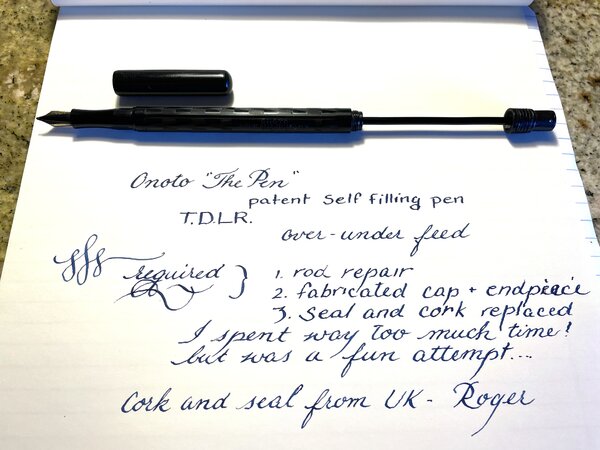 Onoto "The Pen"
patent self filling pen
T.D.L.R.
over-under feed
required } 1. rod repair
2. fabricated cap + endpiece
3. seal and cork replaced
I spent way too much time!
but was a fun attempt...
Cork and seal from UK - Roger